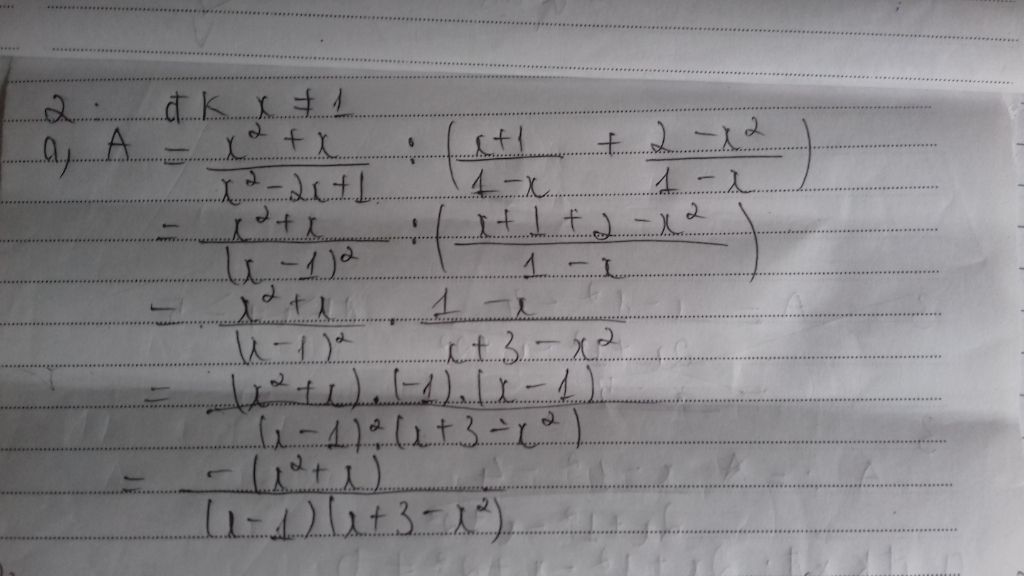 2: đk x ≠ 1
a, A = (x² + x)/(x² - 2x + 1) : ((x+1)/(1-x) + (2-x²)/(1-x))
= (x² + x)/((x-1)²) : ((x+1+2-x²)/(1-x))
= (x² + x)/((x-1)²) . (1-x)/(x+3-x²)
= ((x² + x).(-1).(x-1))/((x-1)².(x+3-x²))
= (-(x² + x))/((x-1)(x+3-x²))